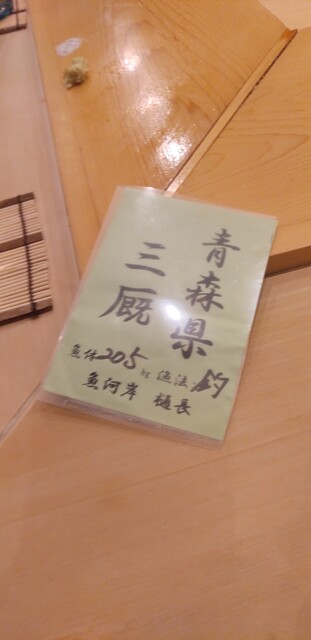 青森県
三厩
魚体205kg 漁法:釣
魚河岸 樋長